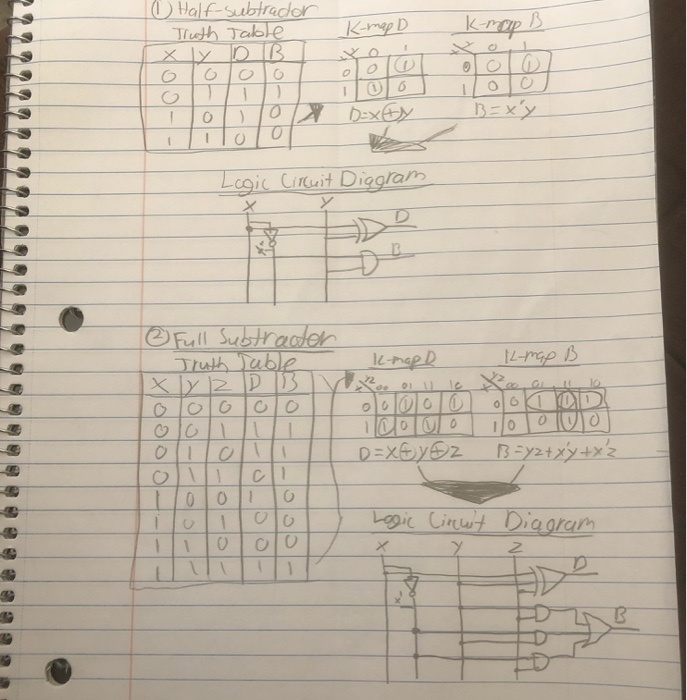 ① Half-subtractor
Truth Table
X Y D B
0 0 0 0
0 1 1 1
1 0 1 0
1 1 0 0
K-map D
x\y 0 1
0 0 1
1 1 0
D=x⊕y
K-map B
x\y 0 1
0 0 1
1 0 0
B=x'y
Logic Circuit Diagram
X Y
x'
D
B
② Full Subtractor
Truth Table
X Y Z D B
0 0 0 0 0
0 0 1 1 1
0 1 0 1 1
0 1 1 0 1
1 0 0 1 0
1 0 1 0 0
1 1 0 0 0
1 1 1 1 1
K-map D
x\yz 00 01 11 10
0 0 1 0 1
1 1 0 1 0
D=x⊕y⊕z
K-map B
x\yz 00 01 11 10
0 0 1 1 1
1 0 0 1 0
B=yz+x'y+x'z
Logic Circuit Diagram
X Y Z
x'
D
B